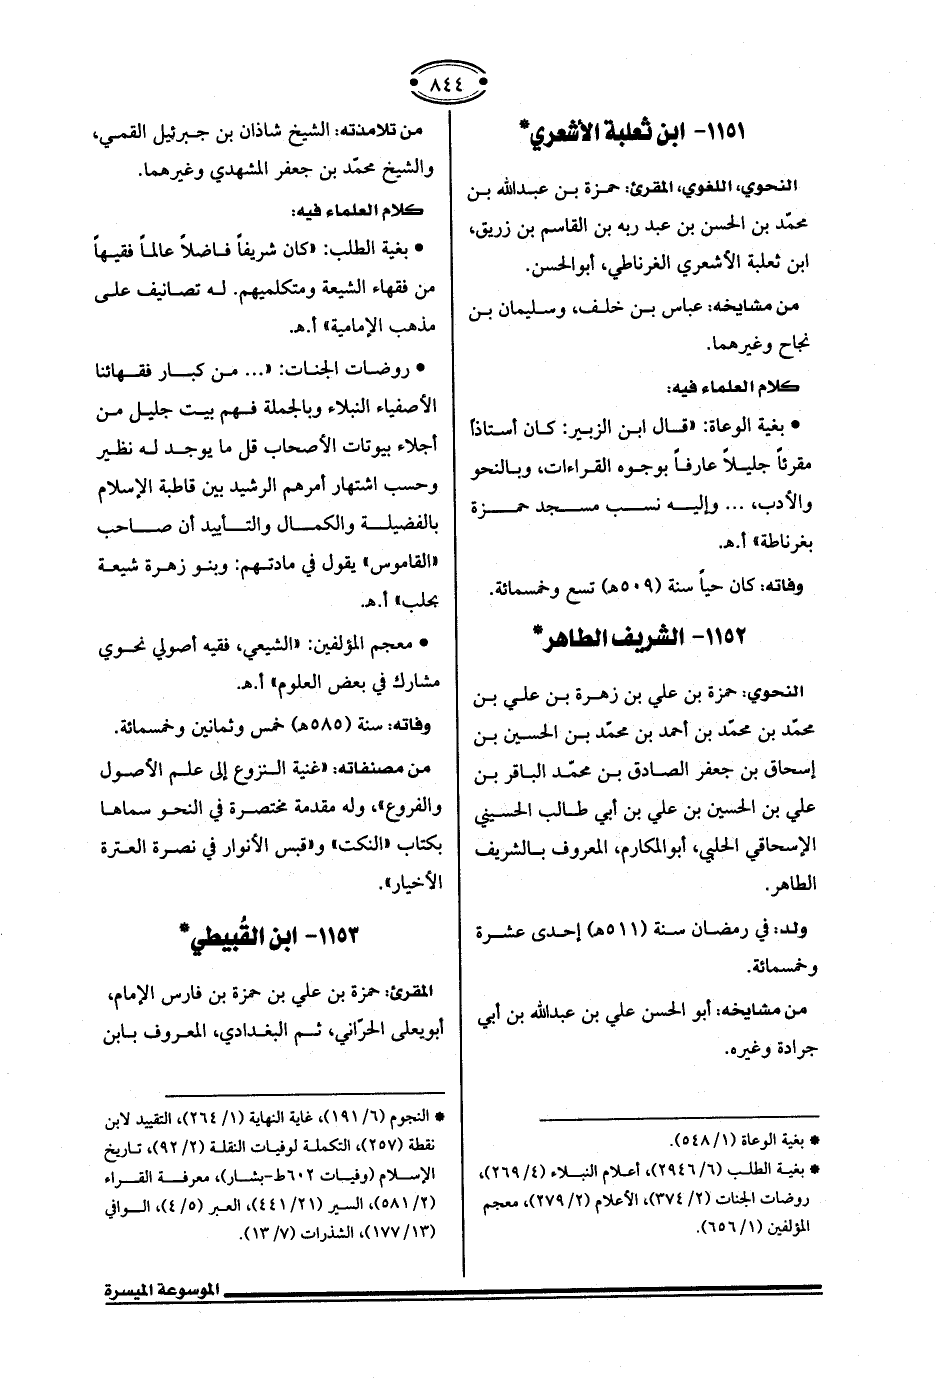 ٨٤٤
١١٥١- ابن ثعلبة الأشعري*
النحوي، اللغوي، المقرئ: حمزة بن عبدالله بن
محمّد بن الحسن بن عبد ربه بن القاسم بن زريق،
ابن ثعلبة الأشعري الغرناطي، أبوالحسن.
من مشايخه: عباس بن خلف، وسليمان بن
نجاح وغيرهما.
كلام العلماء فيه:
• بغية الوعاة: «قال ابن الزبير: كان أستاذاً
مقرئاً جليلاً عارفاً بوجوه القراءات، وبالنحو
والأدب، ... وإليه نسب مسجد حمزة
بغرناطة» أ.هـ.
وفاته: كان حياً سنة (٥٠٩هـ) تسع وخمسمائة.
١١٥٢- الشريف الطاهر*
النحوي: حمزة بن علي بن زهرة بن علي بن
محمّد بن محمّد بن أحمد بن محمّد بن الحسين بن
إسحاق بن جعفر الصادق بن محمّد الباقر بن
علي بن الحسين بن علي بن أبي طالب الحسيني
الإسحاقي الحلبي، أبوالمكارم، المعروف بالشريف
الطاهر.
ولد: في رمضان سنة (٥١١هـ) إحدى عشرة
وخمسمائة.
من مشايخه: أبو الحسن علي بن عبدالله بن أبي
جرادة وغيره.
* بغية الوعاة (١/ ٥٤٨).
* بغية الطلب (٦/ ٢٩٤٦)، أعلام النبلاء (٤/ ٢٦٩)،
روضات الجنات (٢/ ٣٧٤)، الأعلام (٢/ ٢٧٩)، معجم
المؤلفين (١/ ٦٥٦).
من تلامذته: الشيخ شاذان بن جبرئيل القمي،
والشيخ محمّد بن جعفر المشهدي وغيرهما.
كلام العلماء فيه:
• بغية الطلب: «كان شريفاً فاضلاً عالماً فقيهاً
من فقهاء الشيعة ومتكلميهم. له تصانيف على
مذهب الإمامية» أ.هـ.
• روضات الجنات: «... من كبار فقهائنا
الأصفياء النبلاء وبالجملة فهم بيت جليل من
أجلاء بيوتات الأصحاب قل ما يوجد له نظير
وحسب اشتهار أمرهم الرشيد بين قاطبة الإسلام
بالفضيلة والكمال والتأييد أن صاحب
«القاموس» يقول في مادتهم: وبنو زهرة شيعة
بحلب» أ.هـ.
• معجم المؤلفين: «الشيعي، فقيه أصولي نحوي
مشارك في بعض العلوم» أ.هـ.
وفاته: سنة (٥٨٥هـ) خمس وثمانين وخمسمائة.
من مصنفاته: «غنية النزوع إلى علم الأصول
والفروع»، وله مقدمة مختصرة في النحو سماها
بكتاب «النكت» و«قبس الأنوار في نصرة العترة
الأخيار».
١١٥٣- ابن القُبيطي*
المقرئ: حمزة بن علي بن حمزة بن فارس الإمام،
أبويعلى الحرّاني، ثم البغدادي، المعروف بابن
* النجوم (٦/ ١٩١)، غاية النهاية (١/ ٢٦٤)، التقييد لابن
نقطة (٢٥٧)، التكملة لوفيات النقلة (٢/ ٩٢)، تاريخ
الإسلام (وفيات ٦٠٢ط-بشار)، معرفة القراء
(٢/ ٥٨١)، السير (٢١/ ٤٤١)، العبر (٥/ ٤)، الوافي
(١٣/ ١٧٧)، الشذرات (٧/ ١٣).
الموسوعة الميسرة